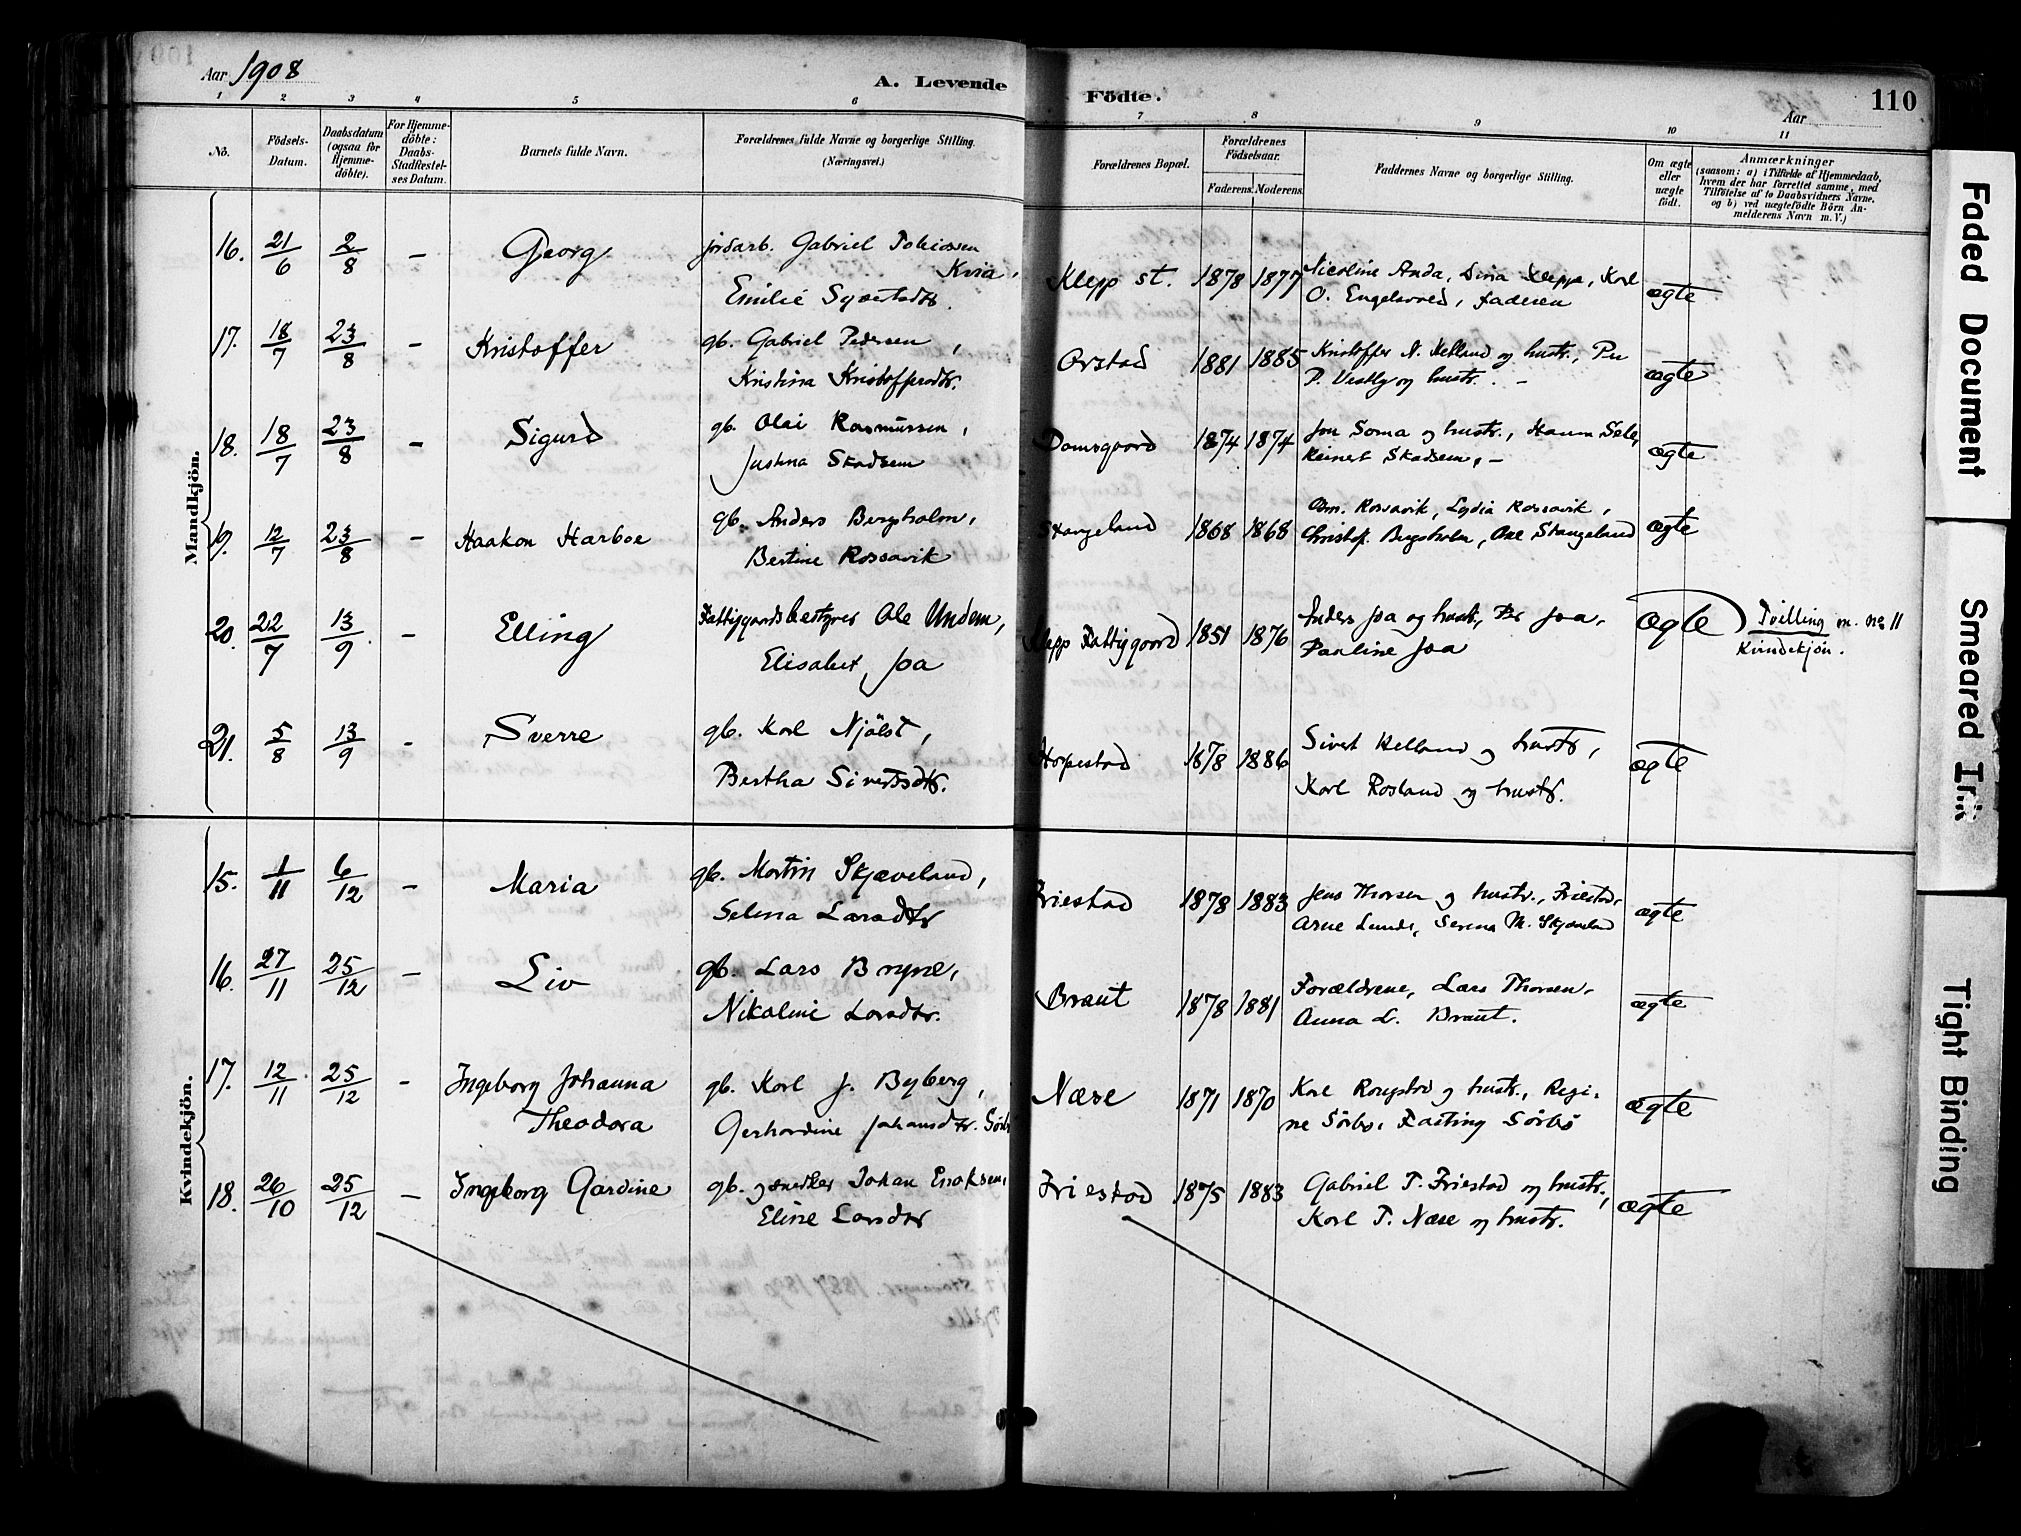 Aar 1908
A. Levende Födte.
Aar
110
1 2 3 4 5 6 7 8 9 10 11
No.
Födsels-Datum.
Daabsdatum (ogsaa for Hjemme-döbte).
For Hjemme-döbte: Daabs-Stadfæstel-ses Datum.
Barnets fulde Navn.
Forældrenes fulde Navne og borgerlige Stilling.
(Næringsvei.)
Forældrenes Bopæl.
Forældrenes Födselsaar.
Faderens. Moderens.
Faddernes Navne og borgerlige Stilling.
Om ægte eller uægte födt.
Anmærkninger
(saasom: a) i Tilfælde af Hjemmedaab, hvem der har forrettet samme, med Tilföielse af to Daabsvidners Navne, og b) ved uægtefödte Börn Anmelderens Navn m. V.)
Mandkjön.
16. 21/6 2/8 – Georg jordarb. Gabriel Tobiassen Kvia, Klepp st. 1878 1877 Nicoline Anda, Dina Kleppe, Karl ægte
Emilie O. Engelsvold, faderen
17. 18/7 23/8 – Kristoffer gb. Gabriel Pedersen, Orstad 1881 1885 Kristoffer N. Helland og hustr., Per ægte
Kristina Kristoffersdtr. P. Vestly og hustr. –
18. 18/7 23/8 – Sigurd gb. Olai Rasmussen, 1874 1874 Jon Soma og hustr., Hanna Sele, ægte
Justina Skadsem Reinert Skadsem, –
19. 12/7 23/8 – Haakon Harboe gb. Anders Bergsholm, Stangeland 1868 1868 Rossavik, Lydia Rossavik, ægte
Bertine Rossavik Christof. Bergsholm, Ane Stangeland
20. 22/7 13/9 – Elling Fattiggaardsbestyrer Ole Undem, Klepp Fattiggaard 1851 1876 Anders Joa og hustr., Per Joa, ægte Tvilling m. no 11
Elisabet Joa Pauline Joa Kvindekjön.
21. 5/8 13/9 – Sverre gb. Karl Njölst, Hapestad 1878 1886 Sivert Helland og hustr, ægte
Bertha Sivertsdtr. Karl Rosland og hustr.
Kvindekjön.
15. 1/11 6/12 – Maria gb. Martin Skjæveland, Friestad 1878 1883 Jens Thorsen og hustr., Friestad, ægte
Selma Larsdtr Arne Lunde, Serena M. Skjæveland
16. 27/11 25/12 – Liv gb. Lars Bryne, Braut 1878 1881 Forældrene, Lars Thorsen, ægte
Nikoline Larsdtr. Anna L. Braut.
17. 12/11 25/12 – Ingeborg Johanna gb. Karl J. Byberg, Næse 1871 1870 Karl og hustr., Regi- ægte
Theodora Gerhardine Johansdtr. Sörbö ne Sörbö, Fasting Sörbö
18. 26/10 25/12 – Ingeborg Gardine gb. og snedker Johan Enoksen, Friestad 1875 1883 Gabriel T. Friestad og hustr., ægte
Eline Larsdtr Karl T. Næse og hustr.
Faded Document
Smeared Ink
Tight Binding